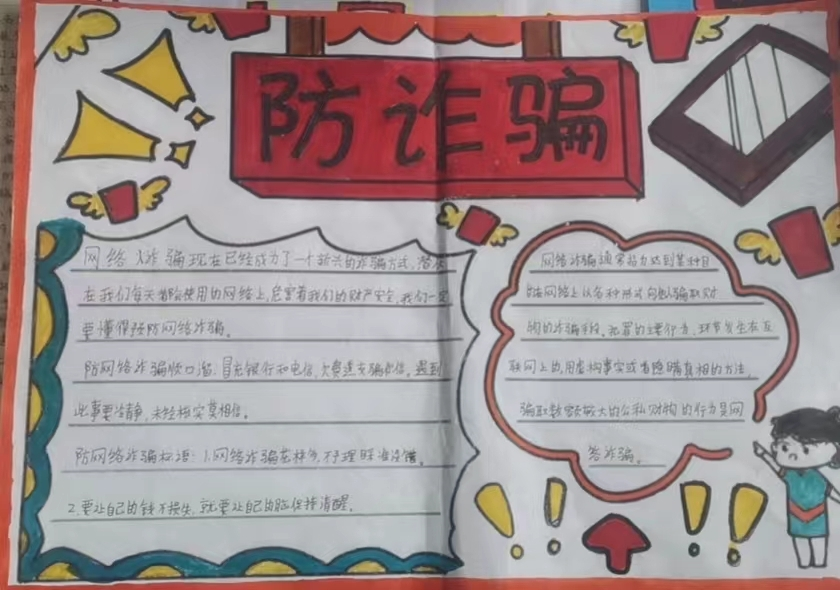 防诈骗
网络诈骗现在已经成为了一个新兴的诈骗方式,潜伏
在我们每天都使用的网络上,危害着我们的财产安全,我们一定
要懂得预防网络诈骗。
防网络诈骗顺口溜:冒充银行和电信,欠费遗失骗你信。遇到
此事要冷静,未经核实莫相信。
防网络诈骗标语:1.网络诈骗花样多,不予理睬准没错。
2.要让自己的钱不损失,就要让自己的脑保持清醒。
网络诈骗通常指为达到某种目
的在网络上以各种形式向他骗取财
物的诈骗手段。犯罪的主要行为、环节发生在互
联网上的,用虚构事实或者隐瞒真相的方法,
骗取数额较大的公私财物的行为是网
络诈骗。